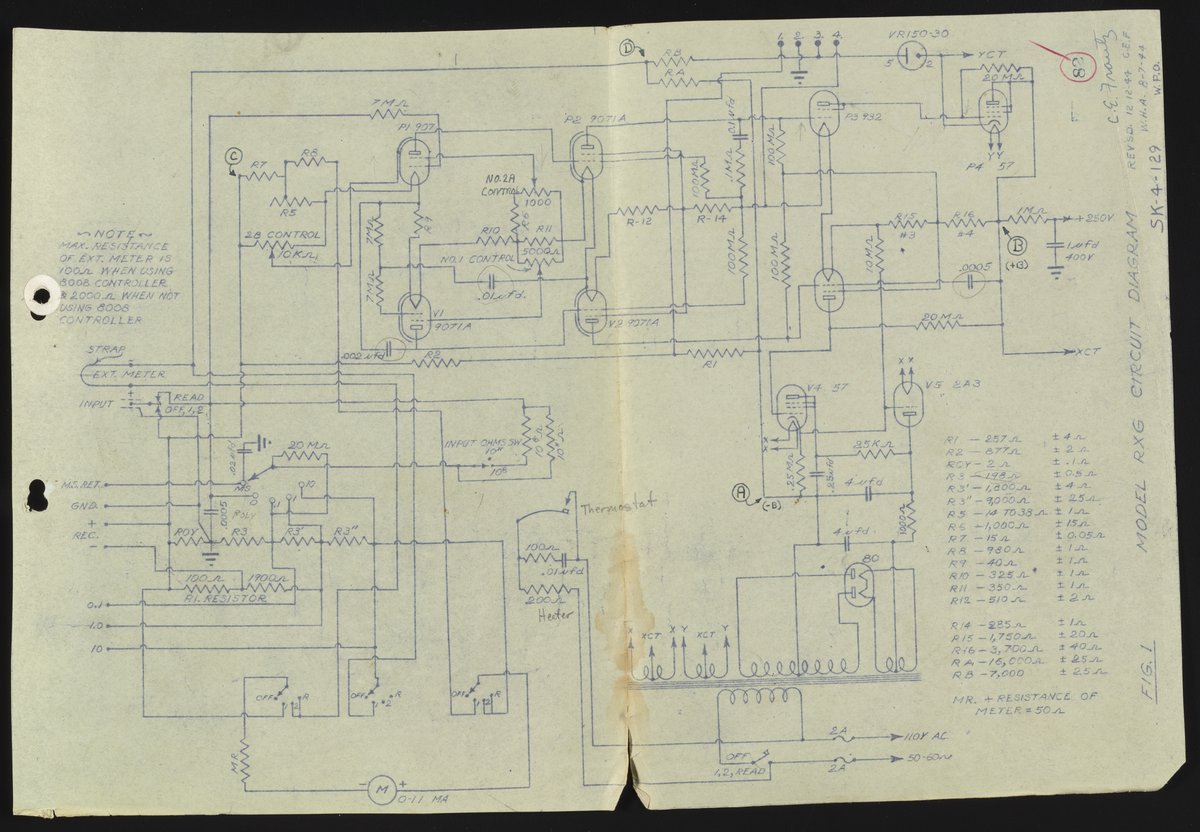 ~NOTE~
MAX. RESISTANCE
OF EXT. METER IS
100Ω WHEN USING
8008 CONTROLLER
& 2000Ω WHEN NOT
USING 8008
CONTROLLER
STRAP
EXT. METER
INPUT
READ
OFF, 1, 2
M.S. RET.
GND.
+
REC.
-
0.1
1.0
10
C
R7
R8
R5
2B CONTROL
10KΩ
7MΩ
P1 9071
R9
7MΩ
7MΩ
V1
9071A
.002 μfd
R2
NO. 2A
CONTROL
1000
R6
R10
R11
5000Ω
NO.1 CONTROL
.01μfd.
P2 9071A
V2 9071A
D
RB
RA
1. 2. 3. 4.
VR150-30
5 2
YCT
20MΩ
P4 57
Y Y
P3 932
.01μfd
.1MΩ
100MΩ
100MΩ
R-12
R-14
100MΩ
100MΩ
R15
#3
R16
#4
1MΩ
+250V
1μfd
400V
B
(+B)
10MΩ
.0005
20MΩ
XCT
R1
V4 57
X X
V5 2A3
X
X
.25MΩ
.25μfd
25KΩ
4μfd
A
(-B)
1000Ω
4μfd.
80
INPUT OHMS SW.
.02μfd
20MΩ
MS
.0005
POLY
0
1
1
10
RDY
R3
R3'
R3"
100Ω
1900Ω
P.I. RESISTOR
Thermostat
100Ω
.01μfd
200Ω
Heater
X XCT X Y XCT Y
OFF 1 2 R
OFF 1 2 R
OFF 1 2 R
MR
M
+
0-1.1 MA
2A
110V AC
OFF
1, 2, READ
2A
50-60~
R1 - 257Ω ±4Ω
R2 - 877Ω ±2Ω
RDY - 2Ω ±.1Ω
R3 - 198Ω ±0.5Ω
R3' - 1,800Ω ±4Ω
R3" - 9,000Ω ±25Ω
R5 - 14 TO 38Ω ±1Ω
R6 - 1,000Ω ±15Ω
R7 - 15Ω ±0.05Ω
R8 - 980Ω ±1Ω
R9 - 40Ω ±1Ω
R10 - 325Ω ±1Ω
R11 - 350Ω ±1Ω
R12 - 510Ω ±2Ω
R14 - 285Ω ±1Ω
R15 - 1,750Ω ±20Ω
R16 - 3,700Ω ±40Ω
RA - 16,000Ω ±25Ω
RB - 7,000 ±25Ω
MR. + RESISTANCE OF
METER = 50Ω
FIG. 1
MODEL RXG CIRCUIT DIAGRAM
SK-4-129
REVSD. 12-12-44 C.E.F.
W.H.A. 8-7-44
W.P.O.
C.E. Frantz
82